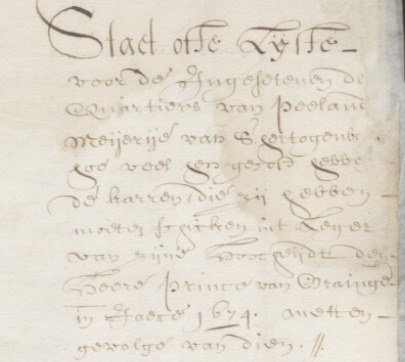 Staet ofte Lÿste
voor de Ingesetenen de
Quartiers van Peelant
Meijerije van S hertogenb
soe veel gelt hebbe
de karren die zij hebben
moeten schicken int Leger
van zijne Hoocheijdt den
Heere Prince van Orainge
in Jaere 1674. metten
gevolge van dien. //.